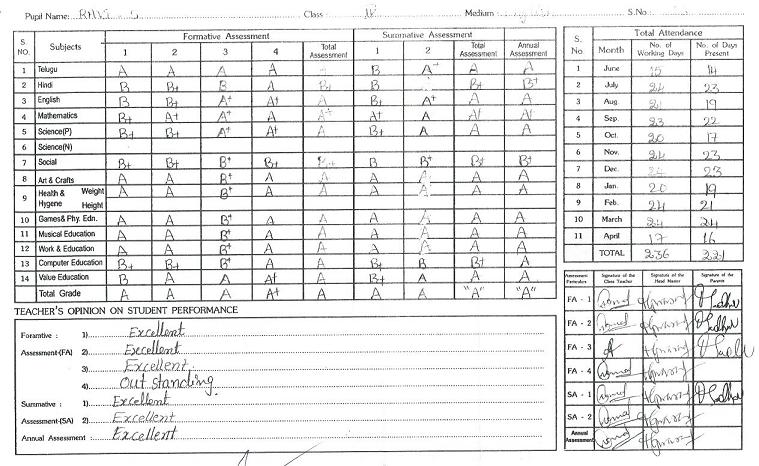 Pupil Name: Class Medium S.No
S. NO. Subjects Formative Assessment Summative Assessment
1 2 3 4 Total Assessment 1 2 Total Assessment Annual Assessment
1 Telugu A A A A B A+ A A
2 Hindi B B+ B A B+ B B+ B+
3 English B B+ A+ A+ A B+ A+ A A
4 Mathematics B+ A A+ A A+ A+ A A+ A+
5 Science(P) B+ B+ A+ A+ A B+ A A A
6 Science(N)
7 Social B+ B+ B+ B+ B+ B B+ B+ B+
8 Art & Crafts A A B+ A A A A A A
9 Health & Hygene Weight Height A A B+ A A A A A A
10 Games& Phy. Edn. A A B+ A A A A A A
11 Musical Education A A B+ A A A A A A
12 Work & Education A A B+ A A A A A A
13 Computer Education B+ B+ B+ A A B B B+ A
14 Value Education B A A A+ A B+ A A A
Total Grade A A A A+ A A A "A" "A"
TEACHER'S OPINION ON STUDENT PERFORMANCE
Foramtive : 1) Excellent
Assessment-(FA) 2) Excellent
3) Excellent
4) Out standing
Summative : 1) Excellent
Assessment-(SA) 2) Excellent
Annual Assessment : Excellent
S. No. Month Total Attendance
No. of Working Days No. of Days Present
1 June 15 14
2 July 24 23
3 Aug. 21 19
4 Sep. 23 22
5 Oct. 20 17
6 Nov. 24 23
7 Dec. 24 23
8 Jan. 20 19
9 Feb. 24 21
10 March 24 24
11 April 17 16
TOTAL 236 221
Assessment Particulars Signature of the Class Teacher Signature of the Head Master Signature of the Parents
FA - 1
FA - 2
FA - 3
FA - 4
SA - 1
SA - 2
Annual Assessment